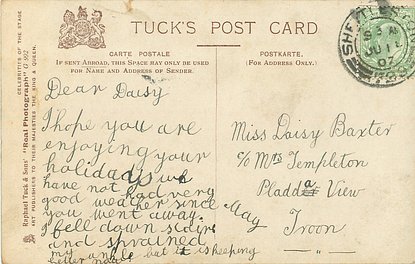 TUCK'S POST CARD
CARTE POSTALE
IF SENT ABROAD, THIS SPACE MAY ONLY BE USED
FOR NAME AND ADDRESS OF SENDER.
POSTKARTE.
(FOR ADDRESS ONLY.)
Raphael Tuck & Sons' "Real Photograph" G 992
CELEBRITIES OF THE STAGE
ART PUBLISHERS TO THEIR MAJESTIES THE KING & QUEEN.
Dear Daisy
I hope you are
enjoying your
holidays we
have not had very
good weather since
you went away.
I fell down stairs
and sprained
my ankle but it is keeping
better now
May
Miss Daisy Baxter
c/o Mrs Templeton
Pladda View
Troon
JU
07